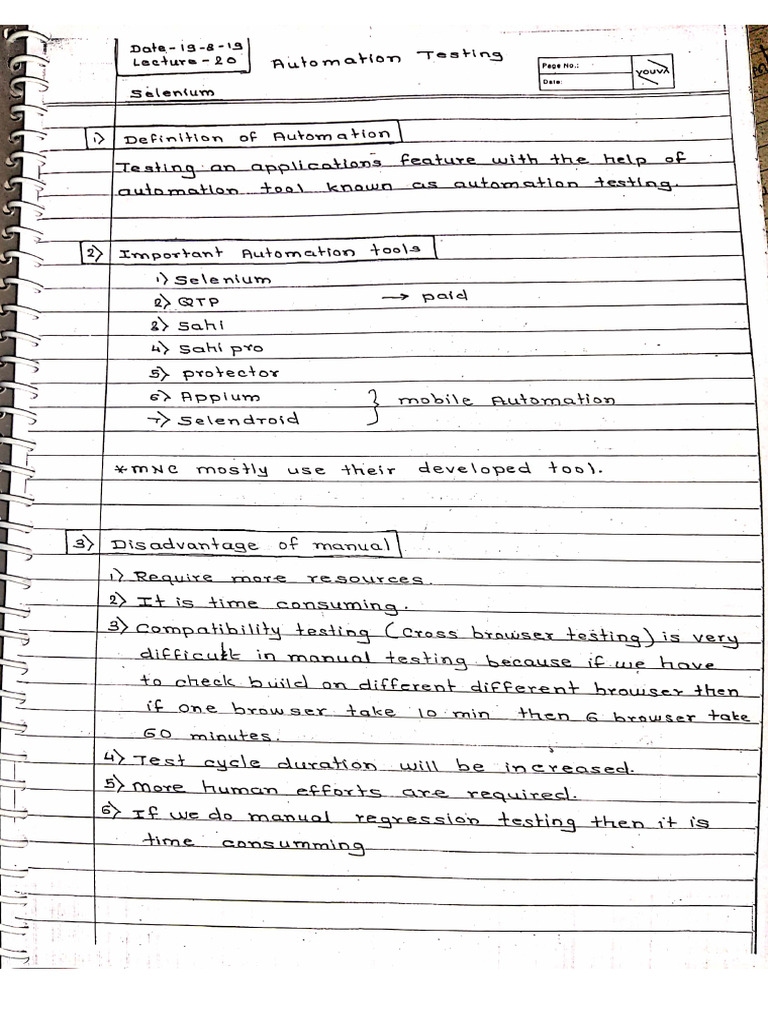 Date-19-8-19
Lecture-20
Automation Testing
Page No.:
Date:
youva
Selenium
1) Definition of Automation
Testing an applications feature with the help of
automation tool known as automation testing.
2) Important Automation tools
1) Selenium
2) QTP → paid
3) Sahi
4) Sahi pro
5) protector
6) Appium } mobile Automation
7) Selendroid
*MNC mostly use their developed tool.
3) Disadvantage of manual
1) Require more resources.
2) It is time consuming.
3) Compatibility testing (cross browser testing) is very
difficult in manual testing because if we have
to check build on different different browser then
if one browser take 10 min then 6 browser take
60 minutes.
4) Test cycle duration will be increased.
5) More human efforts are required.
6) If we do manual regression testing then it is
time consumming